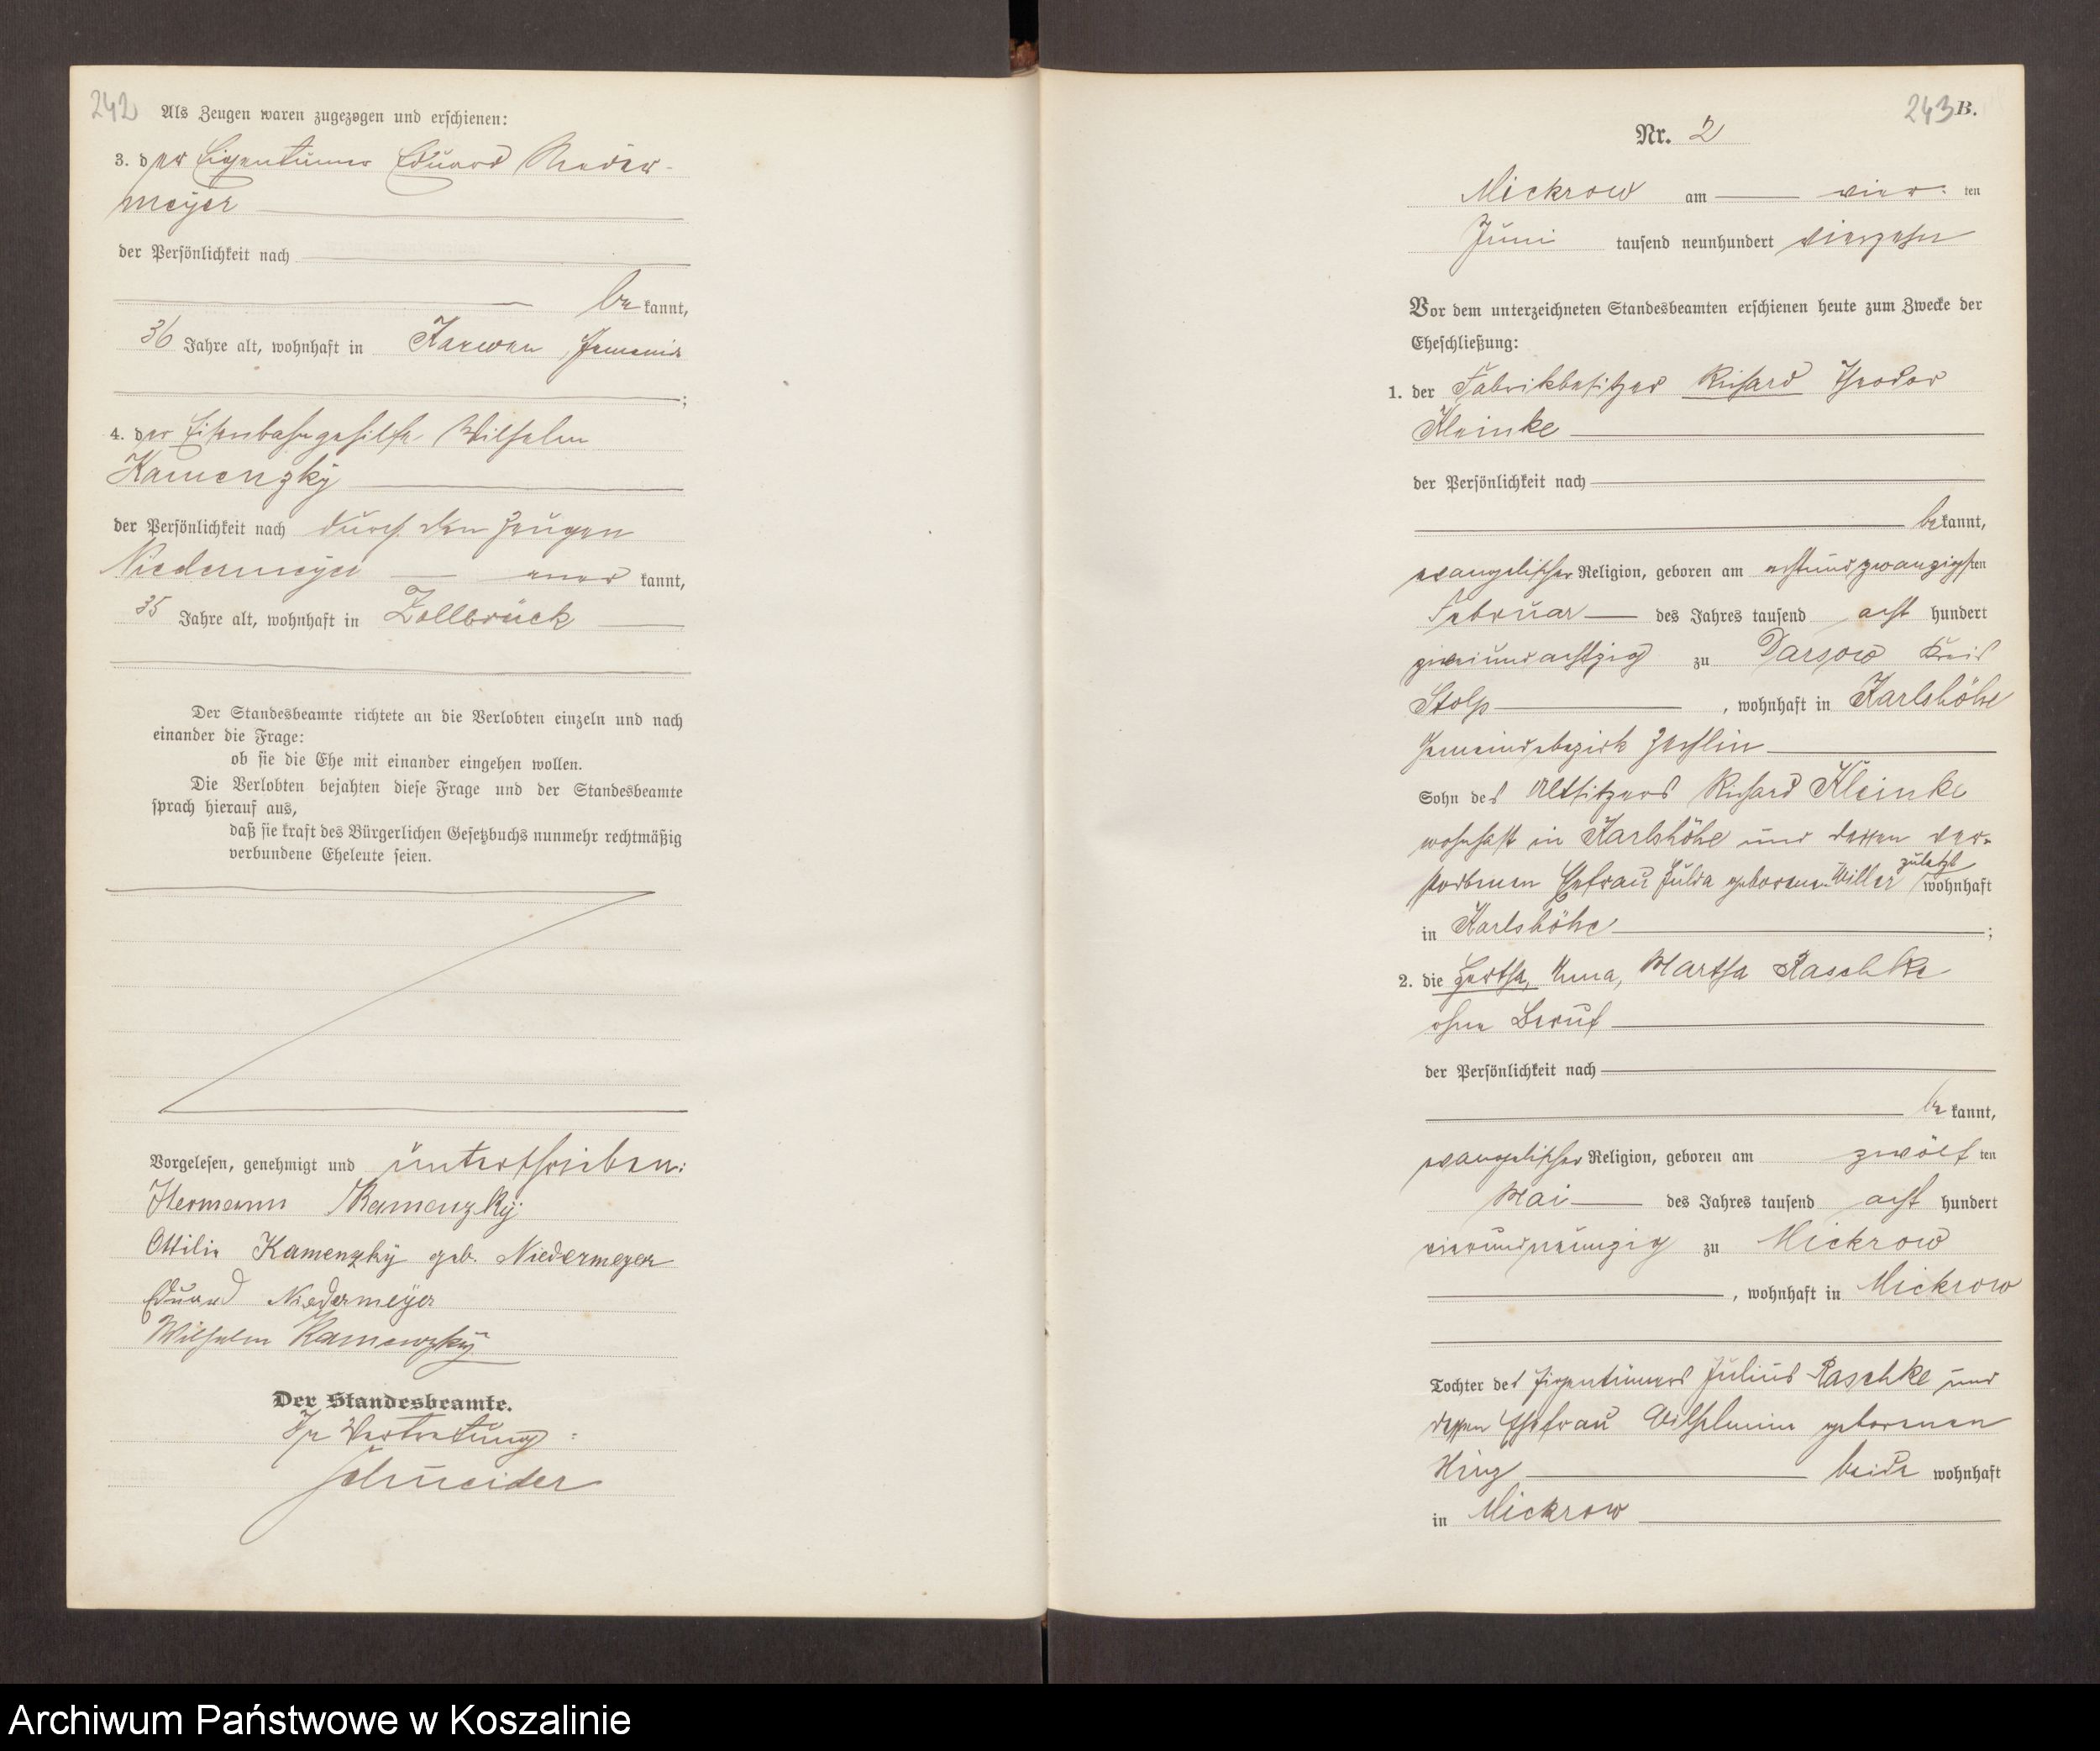 242 Als Zeugen waren zugezogen und erschienen:
3. der Eigentümer Eduard Nieder-
meyer
der Persönlichkeit nach
be kannt,
36 Jahre alt, wohnhaft in Karwen
4. der Eisenbahngehilfe Wilhelm
Kamenzky
der Persönlichkeit nach durch den Zeugen
Niedermeyer aner kannt,
35 Jahre alt, wohnhaft in Zollbrück
Der Standesbeamte richtete an die Verlobten einzeln und nach
einander die Frage:
ob sie die Ehe mit einander eingehen wollen.
Die Verlobten bejahten diese Frage und der Standesbeamte
sprach hierauf aus,
daß sie kraft des Bürgerlichen Gesetzbuchs nunmehr rechtmäßig
verbundene Eheleute seien.
Vorgelesen, genehmigt und unterschrieben:
Hermann Kamenzky
Ottilie Kamenzky geb. Niedermeyer
Eduard Niedermeyer
Wilhelm Kamenzky
Der Standesbeamte.
In Vertretung:
Schneider
243 B.
Nr. 2
Mickrow am vier- ten
Juni tausend neunhundert vierzehn
Vor dem unterzeichneten Standesbeamten erschienen heute zum Zwecke der
Eheschließung:
1. der Fabrikbesitzer Richard Theodor
Kleinke
der Persönlichkeit nach
be kannt,
evangelischer Religion, geboren am achtundzwanzigsten
Februar des Jahres tausend acht hundert
zweiundachtzig zu Darsow Kreis
Stolp, wohnhaft in Karlshöhe
Gemeindebezirk Zechlin
Sohn des Altsitzers Richard Kleinke
wohnhaft in Karlshöhe und dessen ver-
storbenen Ehefrau Julda geborenen Miller zuletzt wohnhaft
in Karlshöhe;
2. die Hertha, Anna, Martha Raschke
ohne Beruf
der Persönlichkeit nach
be kannt,
evangelischer Religion, geboren am zwölf ten
Mai des Jahres tausend acht hundert
vierundneunzig zu Mickrow
, wohnhaft in Mickrow
Tochter des Eigentümers Julius Raschke und
dessen Ehefrau Wilhelmine geborenen
Hinz beide wohnhaft
in Mickrow
Archiwum Państwowe w Koszalinie